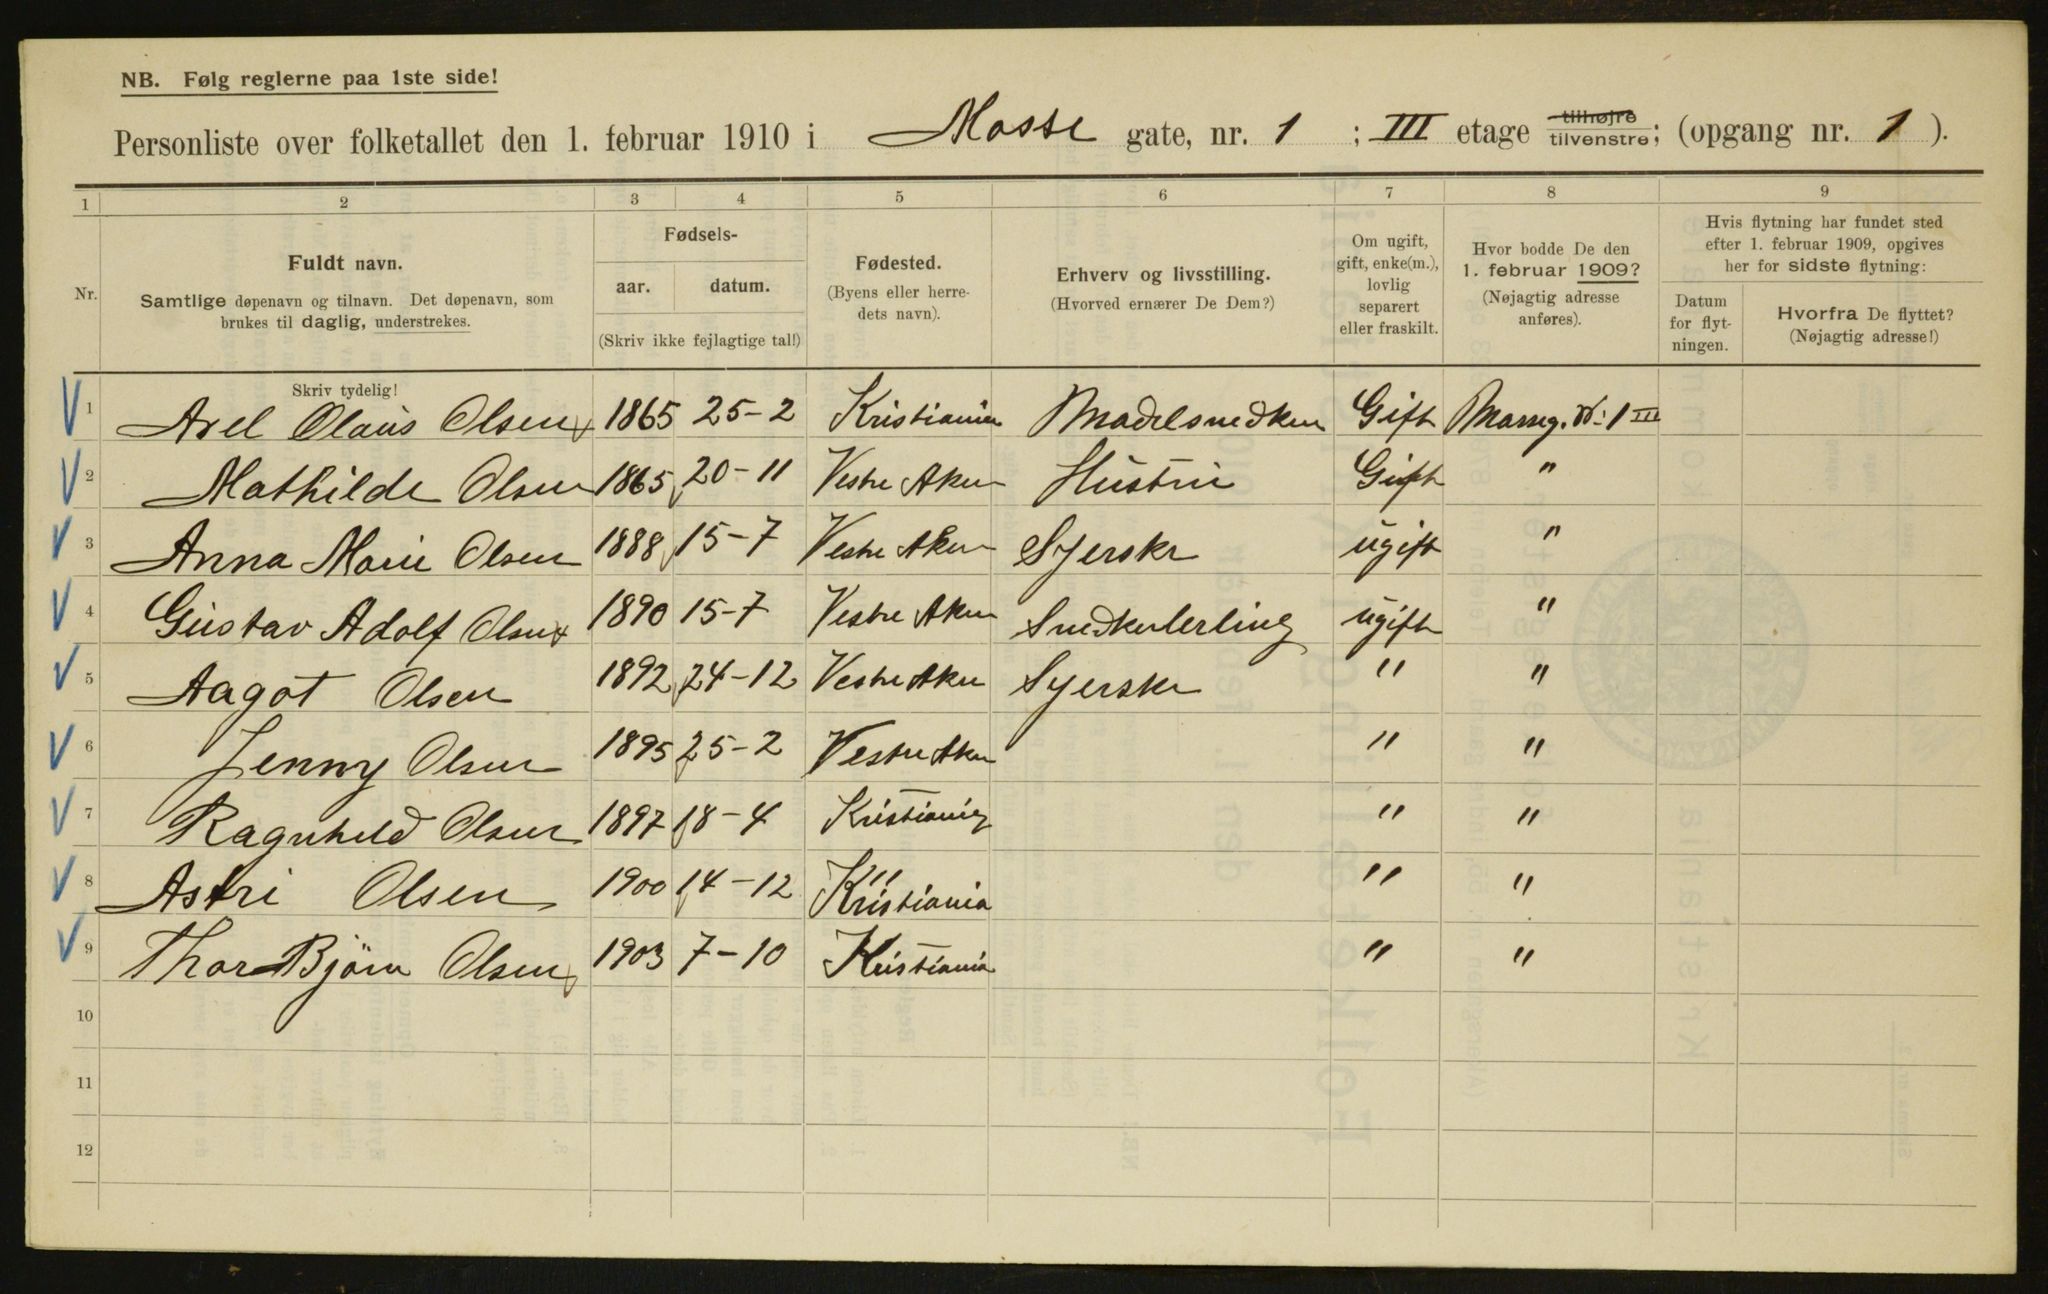 NB. Følg reglerne paa 1ste side!
Personliste over folketallet den 1. februar 1910 i Mosse gate, nr. 1 ; III etage tilhøjre tilvenstre; (opgang nr. 1 ).
1 2 3 4 5 6 7 8 9
Nr.
Fuldt navn.
Samtlige døpenavn og tilnavn. Det døpenavn, som
brukes til daglig, understrekes.
Fødsels-
aar. datum.
(Skriv ikke fejlagtige tal!)
Fødested.
(Byens eller herre-
dets navn).
Erhverv og livsstilling.
(Hvorved ernærer De Dem?)
Om ugift,
gift, enke(m.),
lovlig
separert
eller fraskilt.
Hvor bodde De den
1. februar 1909?
(Nøjagtig adresse
anføres).
Hvis flytning har fundet sted
efter 1. februar 1909, opgives
her for sidste flytning:
Datum
for flyt-
ningen.
Hvorfra De flyttet?
(Nøjagtig adresse!)
Skriv tydelig!
1 Axel Olaus Olsen 1865 25-2 Kristiania Modelsnedker Gift Mosseg. N: 1 III
2 Mathilde Olsen 1865 20-11 Vestre Aker Hustru Gift "
3 Anna Marie Olsen 1888 15-7 Vestre Aker Syerske ugift "
4 Gustav Adolf Olsen 1890 15-7 Vestre Aker Snedkerlerling ugift "
5 Aagot Olsen 1892 24-12 Vestre Aker Syerske " "
6 Jenny Olsen 1895 25-2 Vestre Aker " "
7 Ragnhild Olsen 1897 18-4 Kristiania " "
8 Astri Olsen 1900 14-12 Kristiania " "
9 Thor Björn Olsen 1903 7-10 Kristiania " "
10
11
12